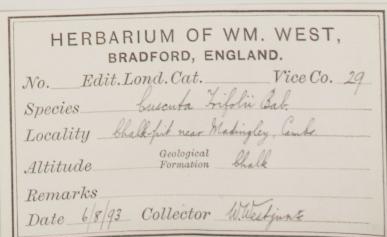 HERBARIUM OF WM. WEST,
BRADFORD, ENGLAND.
No. Edit. Lond. Cat. Vice Co. 29
Species Cuscuta Trifolii Bab.
Locality Chalk-pit near Madingley, Cambs
Altitude Geological Formation Chalk
Remarks
Date 6/8/93 Collector W. West junr